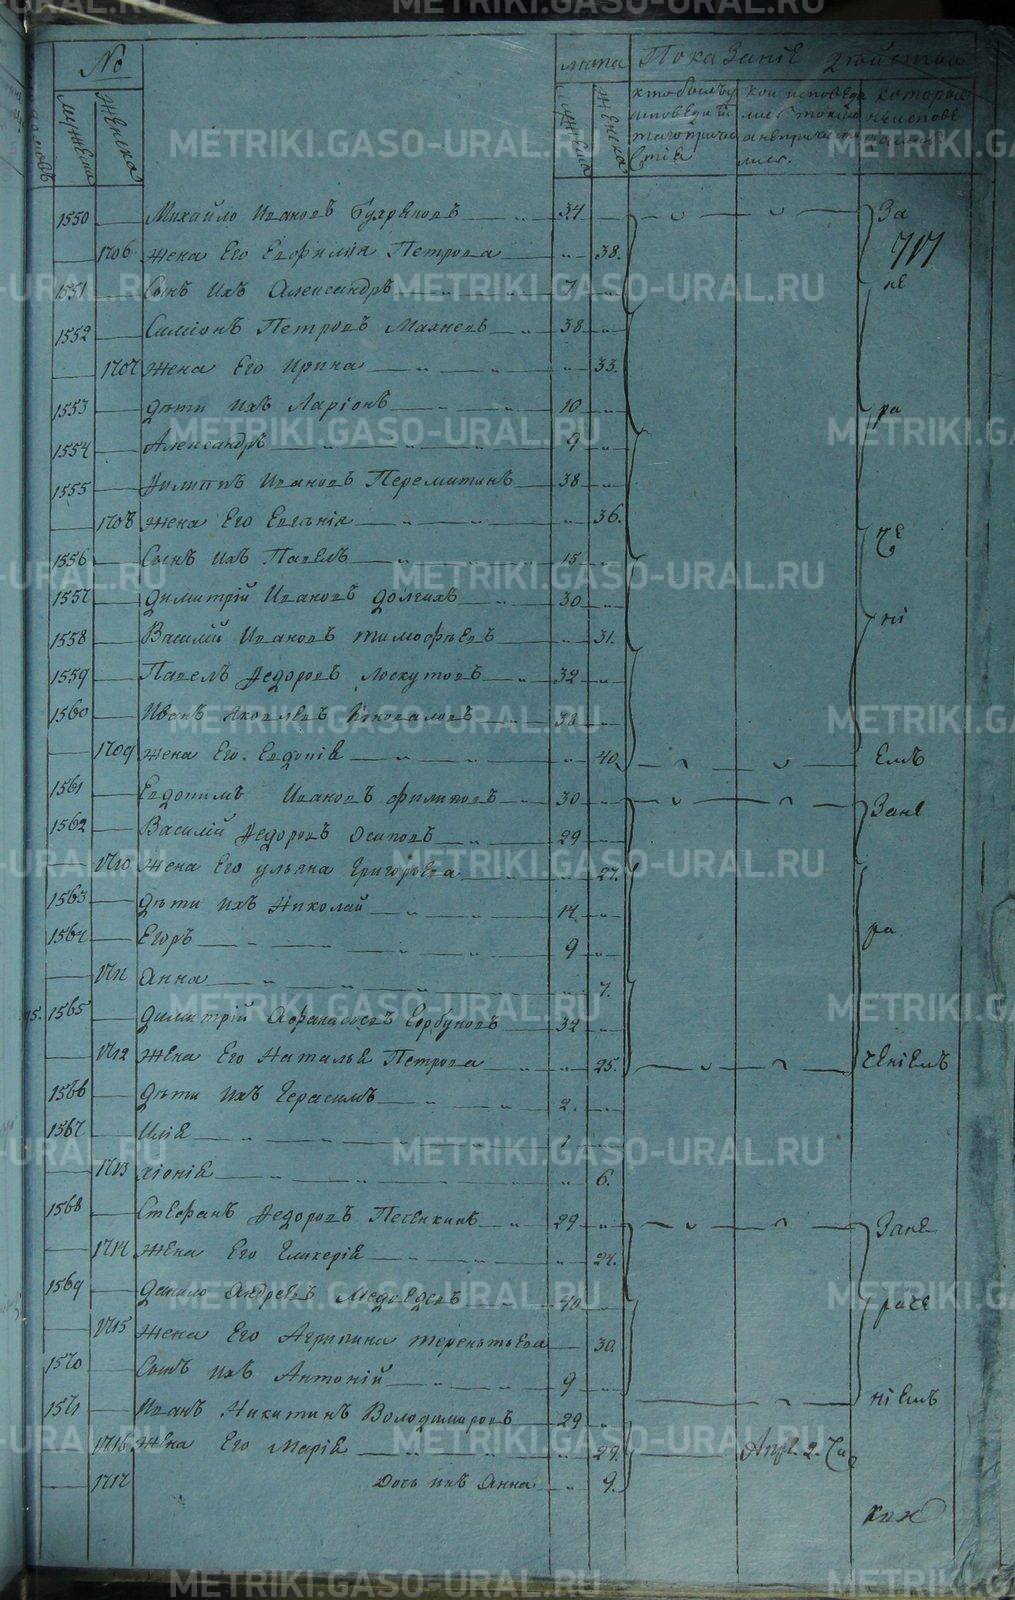 METRIKI.GASO-URAL.RU
№ лѣта Показаніе
мужеска женска мужеска женска
717
1550 Михайло Ивановъ 34 За
1706 жена Его Евфимія Петрова 38.
1551 Сынъ Ихъ Александръ 7 не
1552 Симіонъ Петровъ Махневъ 38
1707 жена Его Ирина 33.
1553 дѣти Ихъ Ларіонъ 10 ра
1554 Александръ 9
1555 Филиппъ Ивановъ Перемитинъ 38
1708 жена Его Евгенія 36.
1556 Сынъ Ихъ Павелъ 15 че
1557 Димитрій Ивановъ Долгихъ 30
1558 Василій Ивановъ Тимофѣевъ 31. ні
1559 Павелъ Федоровъ Лоскутовъ 32
1560 Иванъ Яковлевъ Коноваловъ 38
1709 жена Его Евдокія 40. Емъ
1561 Евдокимъ Ивановъ Филиповъ 30 Зане
1562 Василій Федоровъ Осиповъ 29
1710 Жена Его Ульяна Григорьева 27.
1563 Дѣти Ихъ Николай 14
1564 Егоръ 9 ра
1711 Анна 7.
1565 Димитрій Афанасьевъ Горбуновъ 32
1712 Жена Его Наталья Петрова 25. ченіемъ
1566 Дѣти Ихъ Герасимъ 2.
1567 Илія
1713 Хіонія 6.
1568 Стефанъ Федоровъ Песенкинъ 29 Зане
1714 Жена Его Гликерія 24.
1569 Данило Андреевъ Медведевъ 40 раче
1715 Жена Его Агрипина Терентьева 30.
1570 Сынъ Ихъ Антоній 9 ніемъ
1571 Иванъ Никитинъ Володимировъ 29
1716 Жена Его Марія 29. Апре. 2. Чи
1717 Дочь ихъ Анна 9.